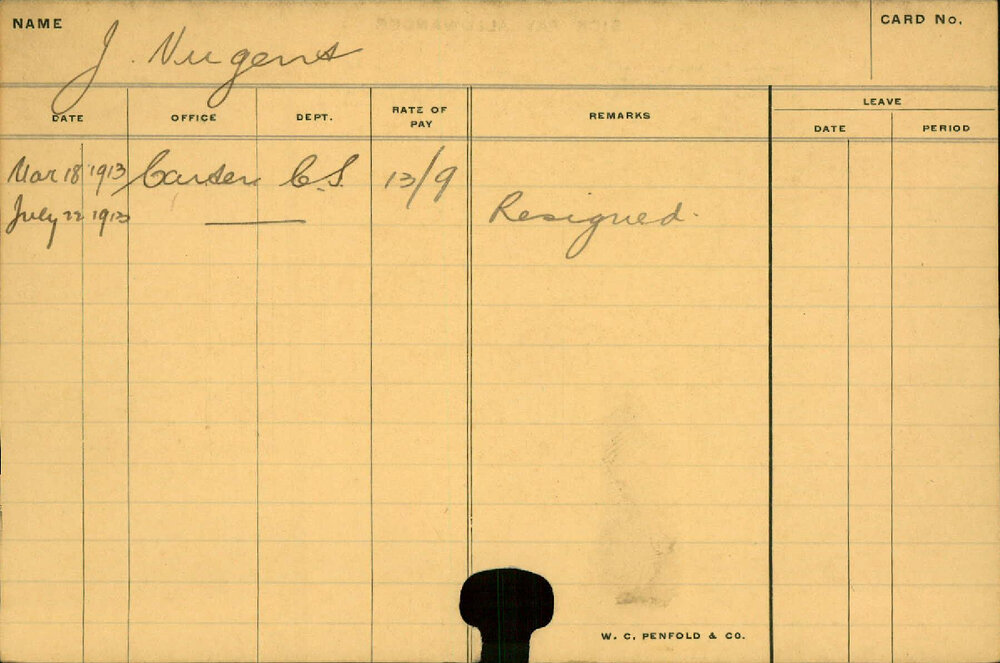 NAME
CARD No.
J. Nugent
DATE OFFICE DEPT. RATE OF PAY REMARKS LEAVE
DATE PERIOD
Mar 18 1913 Carter C.S. 13/9
July 22 1913 Resigned.
W. C. PENFOLD & CO.